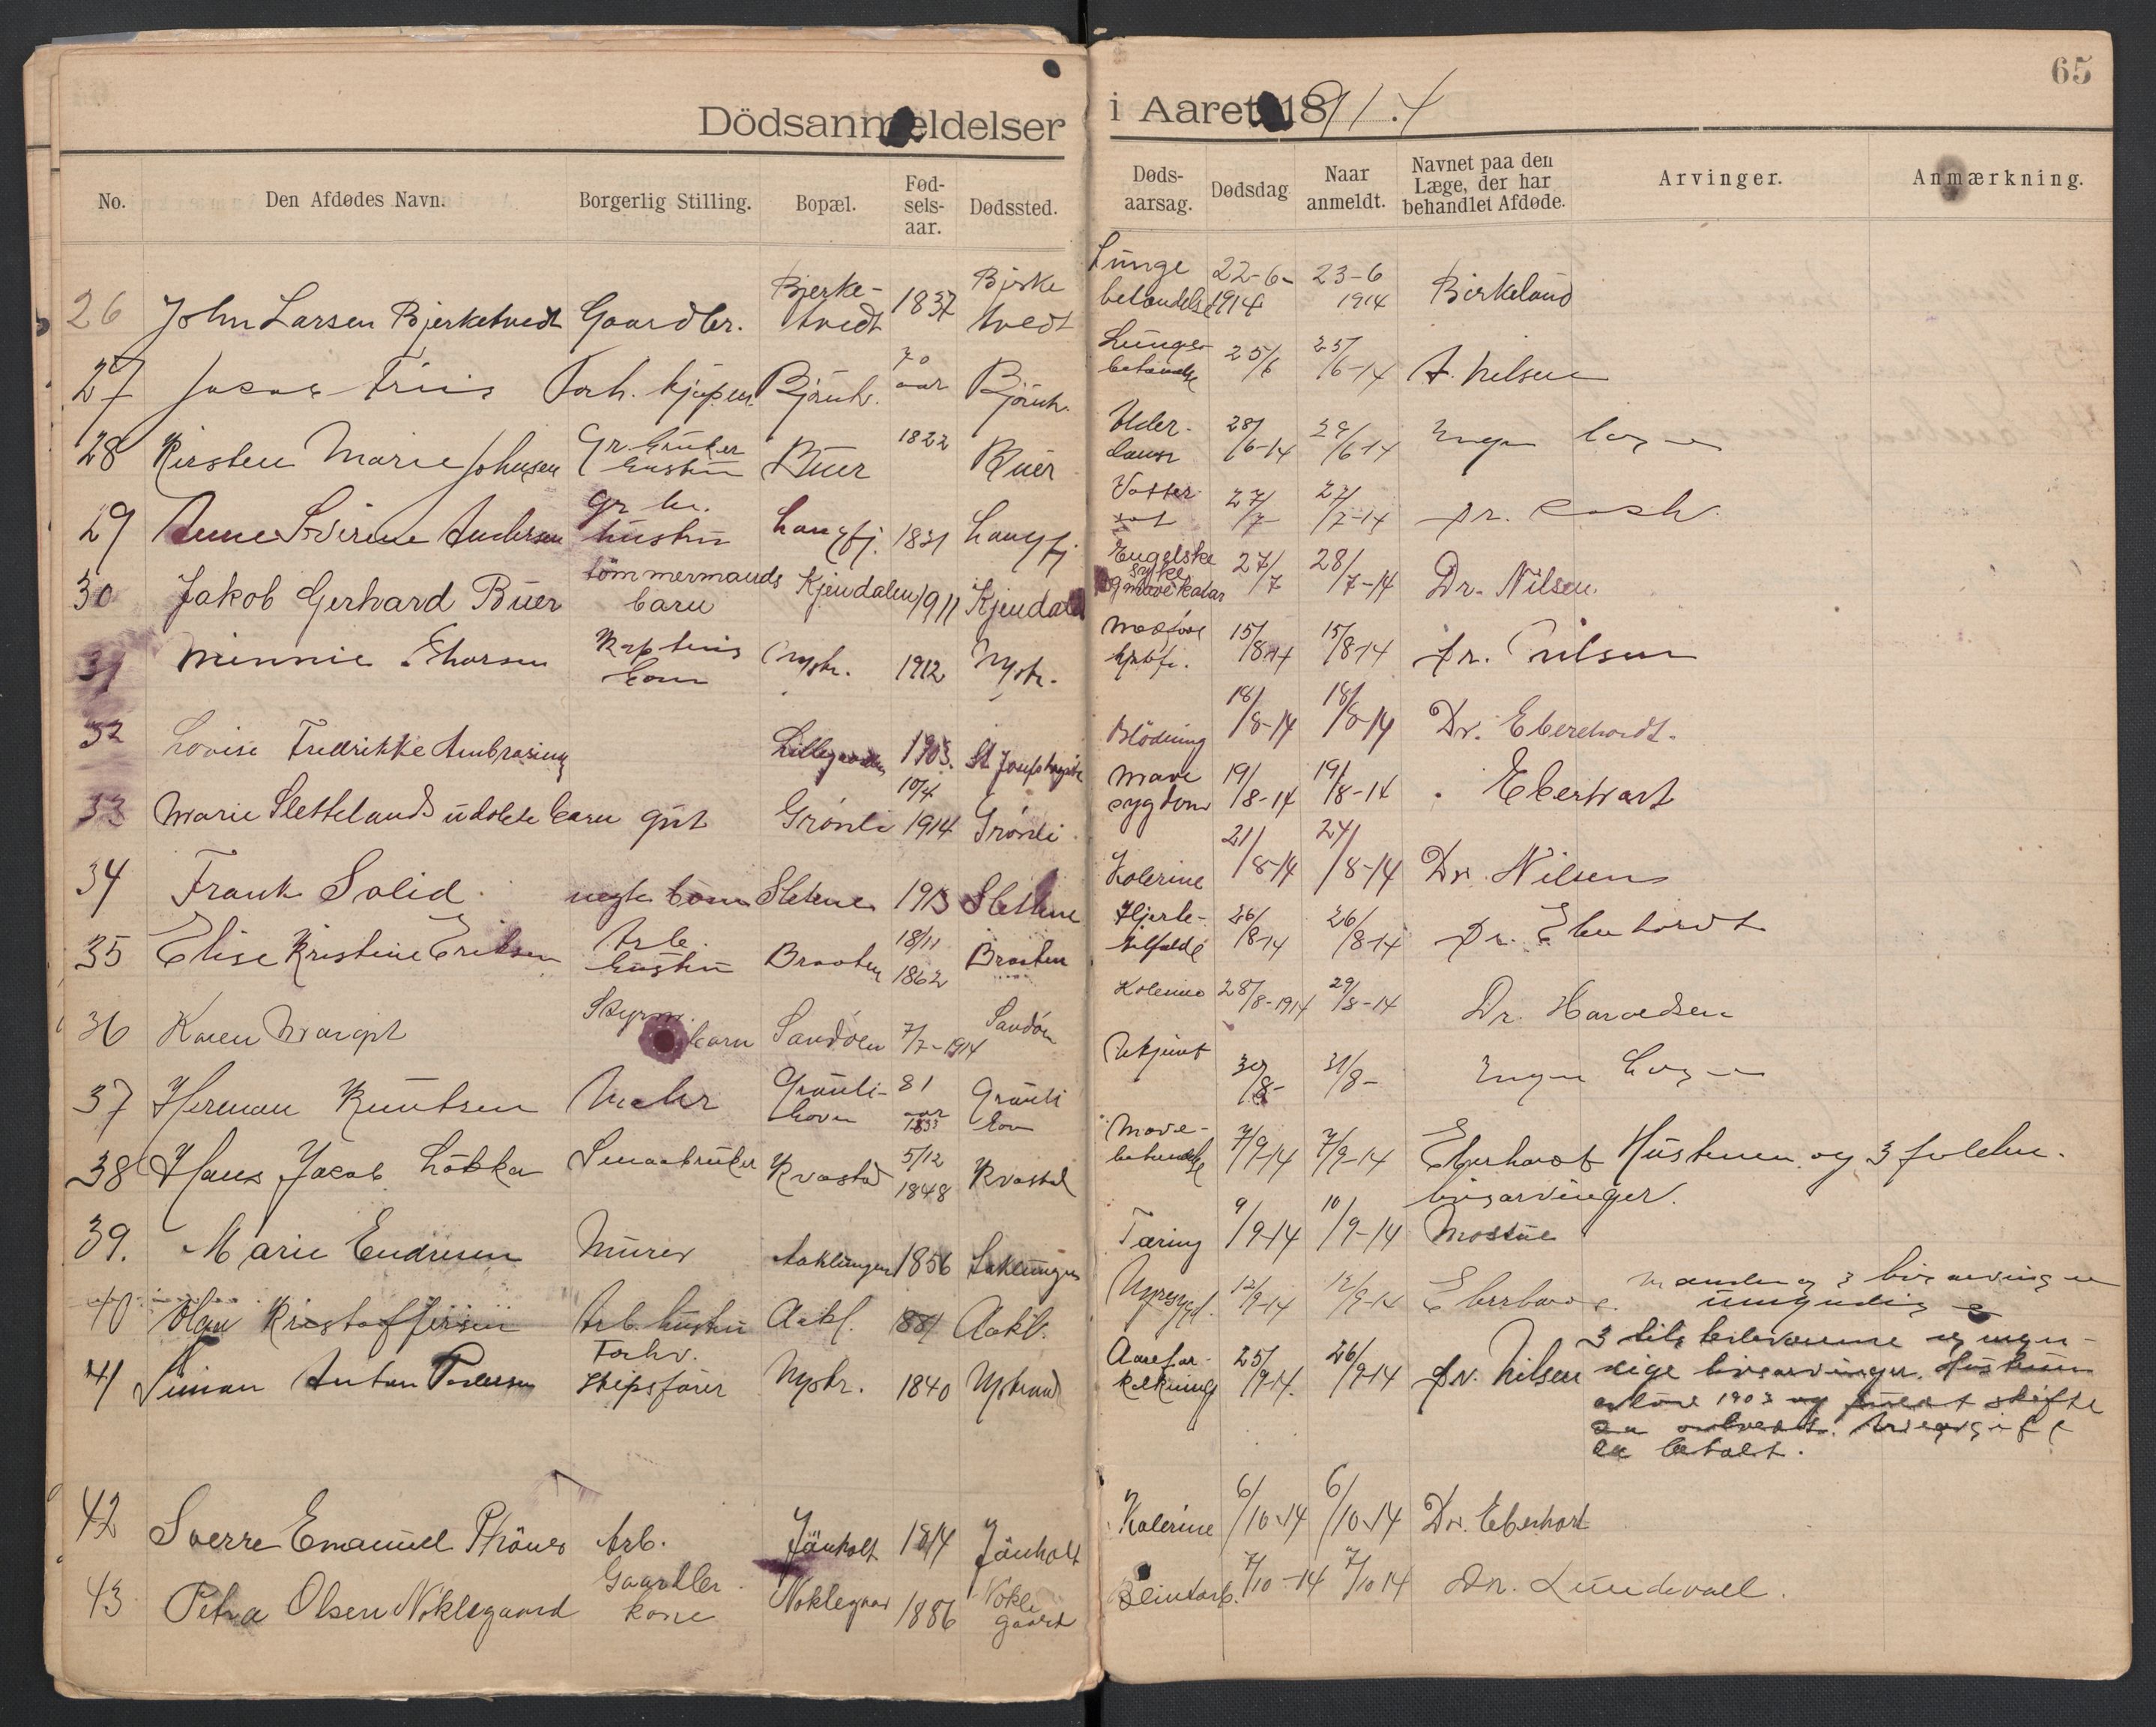 65
Dödsanmeldelser i Aaret 1914
No. Den Afdødes Navn. Borgerlig Stilling. Bopæl. Fød-sels-aar. Dødssted. Døds-aarsag. Dødsdag Naar anmeldt. Navnet paa den Læge, der har behandlet Afdøde. Arvinger. Anmærkning.
26 John Larsen Bjerketvedt Gaardbr. Bjerke-tvedt 1837 Bjrke tvedt Lunge betændelse 22-6-1914 23-6 1914 Birkeland
27 Jacob Friis Forh. Björnh. 70 aar Björnh. Lunge betændelse 25/6 25/6-14 A. Nilsen
28 Kirsten Marie Johnsen Gr. bruker hustru Buer 1822 Buer Alder-dom 28/6-14 29/6-14 Ingen læge
29 Anne Severine Andersen gr br. hustru Langfj. 1831 Langfj. Vatter-sot 27/7 27/7-14 Dr.
30 Jakob Gerhard Buer tömmermands barn Kjendalen 1911 Kjendal Engelske syke og mavekatar 27/7 28/7-14 Dr. Nilsen.
31 Minnie Thorsen Kapteins barn Nystr. 1912 Nystr. 15/8-14 15/8-14 Dr. Nilsen
32 Lovise Fredrikke Lillegaarden 1903. St Josefs Blödning 18/8-14 18/8-14 Dr. Eberhardt.
33 Marie Slettelands udøbte barn gut Grønli 10/4 1914 Grønli Mave sygdom 19/8-14 19/8-14 Eberhart
34 Frank Solid. uegte barn Sletene 1913 Slettene Kolerine 21/8-14 24/8-14 Dr. Nilsen
35 Elise Kristine Eriksen Arb. hustru Braaten 18/11 1862 Braaten Hjerte-tilfelde 26/8-14 26/8-14 Dr. Eberhardt
36 Karen Margit Styrm. barn Sandöen 7/7-1914 Sandöen Kolerine 28/8-1914 29/8-14 Dr. Harvedsen
37 Herman Knutsen Grönli-hoven 81 aar 1833 Grönli hov Ukjent 30/8- 31/8- Ingen læge
38 Hans Jacob Løkka Smaabruker Kvastad 5/12 1848 Kvastad Mave-betændelse 7/9-14 7/9-14 Eberhardt Hustruen og 3
livsarvinger.
39. Marie Endresen Murer Aaklungen 1856 Aaklungen Tæring 9/9-14 10/9-14 Mostue
40 Olga Kristoffersen Arb. hustru Aakl. 1881 Aakl. Nyresygd. 12/9-14 12/9-14 Eberhard Manden og 3 livsarvinger
umyndig
41 Simon Anton Pedersen Forhv. Skipsfører Nystr. 1840 Nystrand Aarefor-kalkning 25/9-14. 26/9-14 Dr. Nilsen 3 myn-
dige livsarvinger. Hustruen
døde 1903 og skifte
er Arveavgift
er betalt.
42 Sverre Emanuel Arb. Jönholt 1914 Jönholt Kolerine 6/10-14 6/10-14 Dr. Eberhart
43 Petra Olsen Nöklegaard Gaardbr. kone Nöklegaard 1886 Nökle gaard Blintarb. 7/10-14 7/10 14 Dr. Lundevall.